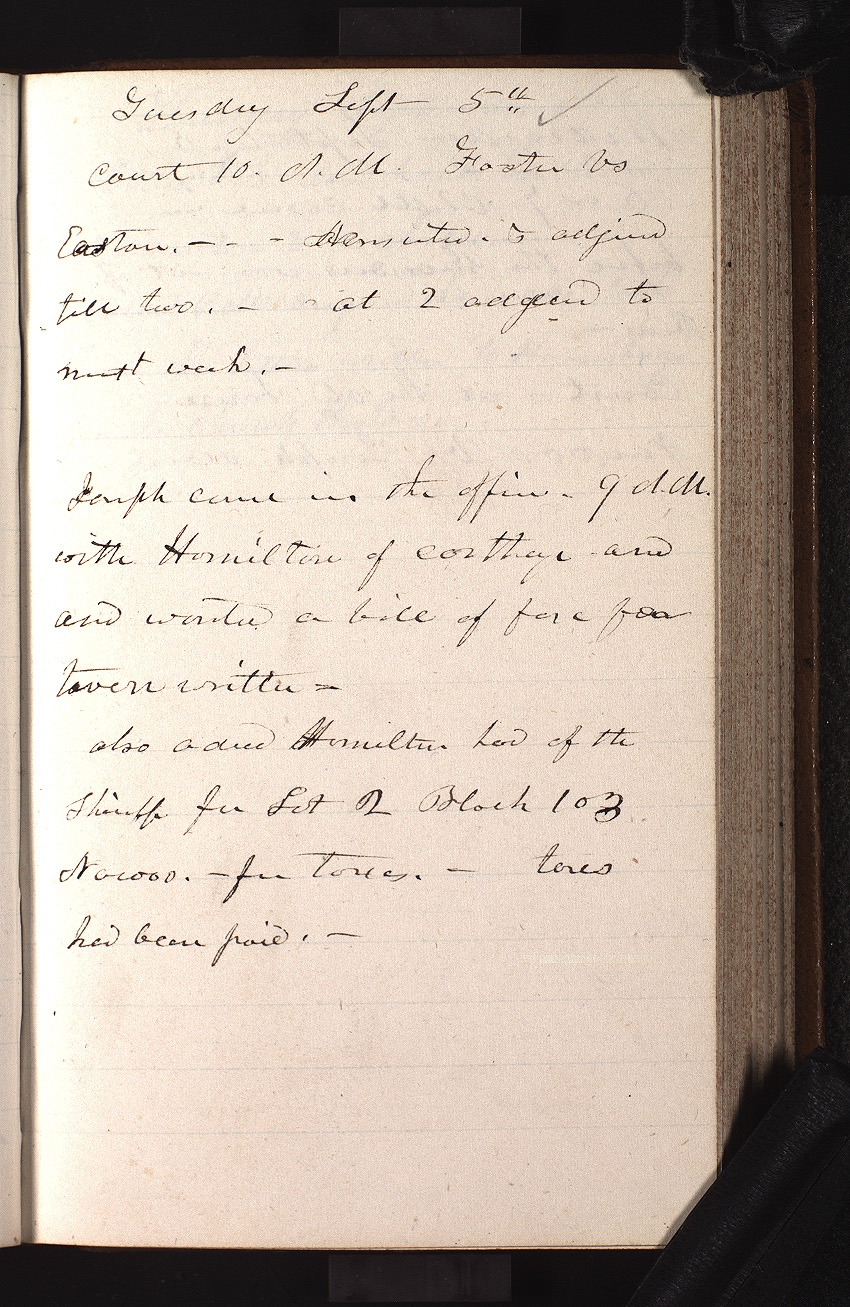 Tuesday Sept 5th
court 10. A. M. Foster vs
Easton. - - - & adjnd
till two. - at 2 adgend to
next week. -
Joseph came in the office - 9 A. M.
with Hamilton of carthage and
and wanted a bill of fare for
tavern written =
also a deed Hamilton had of the
Sheriff for Lot 2 Block 103
Nauvoo. - for taxes. - taxes
had been paid. -